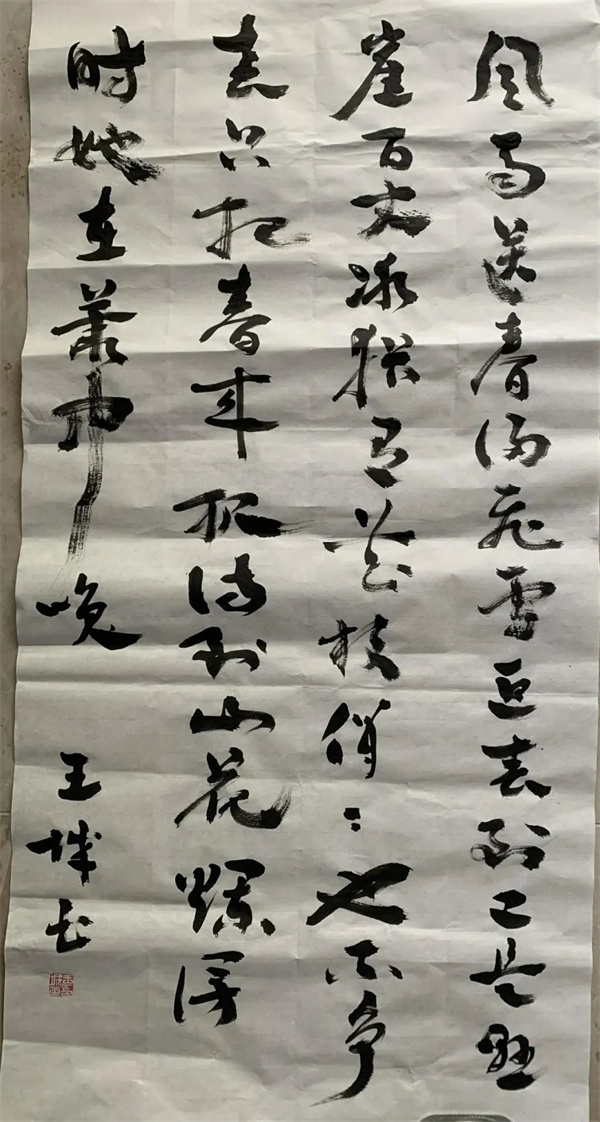 风雨送春归飞雪迎春到已是悬
崖百丈冰犹有花枝俏〻也不争
春只把春来报待到山花烂漫
时她在丛中咲
王城书